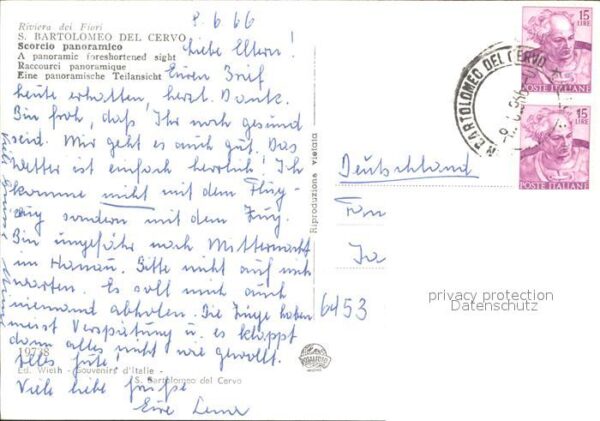 8.6.66
Riviera dei Fiori
S. BARTOLOMEO DEL CERVO
Scorcio panoramico
A panoramic foreshortened sight
Raccourci panoramique
Eine panoramische Teilansicht
Liebe Eltern!
Euren Brief
heute erhalten, herzl. Dank.
Bin froh, daß Ihr noch gesund
seid. Mir geht es auch gut. Das
Wetter ist einfach herrlich! Ich
komme nicht mit dem Flug-
zeug sondern mit dem Zug.
Bin ungefähr nach Mitternacht
in Hanau. Bitte nicht auf mich
warten. Es soll mich auch
niemand abholen. Die Züge haben
meist Verspätung u. es klappt
dann alles nicht wie gewollt.
Alles Gute!
Viele liebe Grüße
Eure
19738
Ed. Wieth - Souvenirs d'Italie -
S. Bartolomeo del Cervo
Riproduzione vietata
S. BARTOLOMEO DEL CERVO
15
LIRE
POSTE ITALIANE
15
LIRE
POSTE ITALIANE
Deutschland
6453
privacy protection
Datenschutz